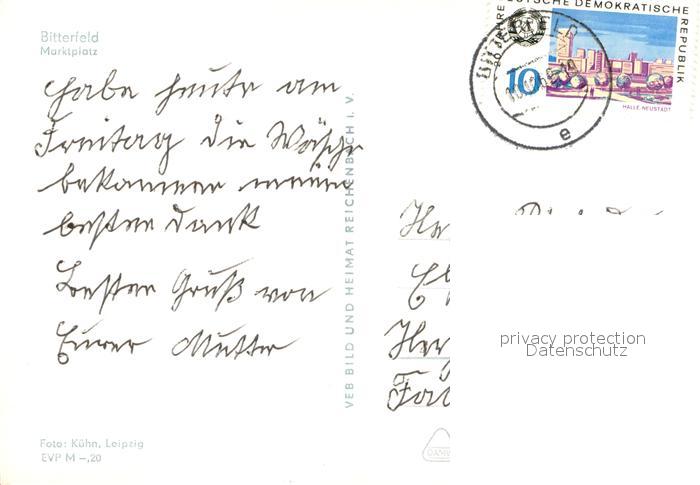 Bitterfeld
Marktplatz
habe heute am
Freitag die Wäsche
bekommen meinen
besten Dank
Besten Gruß von
Eurer Mutter
Foto: Kühn, Leipzig
EVP M –,20
VEB BILD UND HEIMAT REICHENBACH I. V.
DEUTSCHE DEMOKRATISCHE
REPUBLIK
20 JAHRE
10
HALLE-NEUSTADT
e
privacy protection
Datenschutz